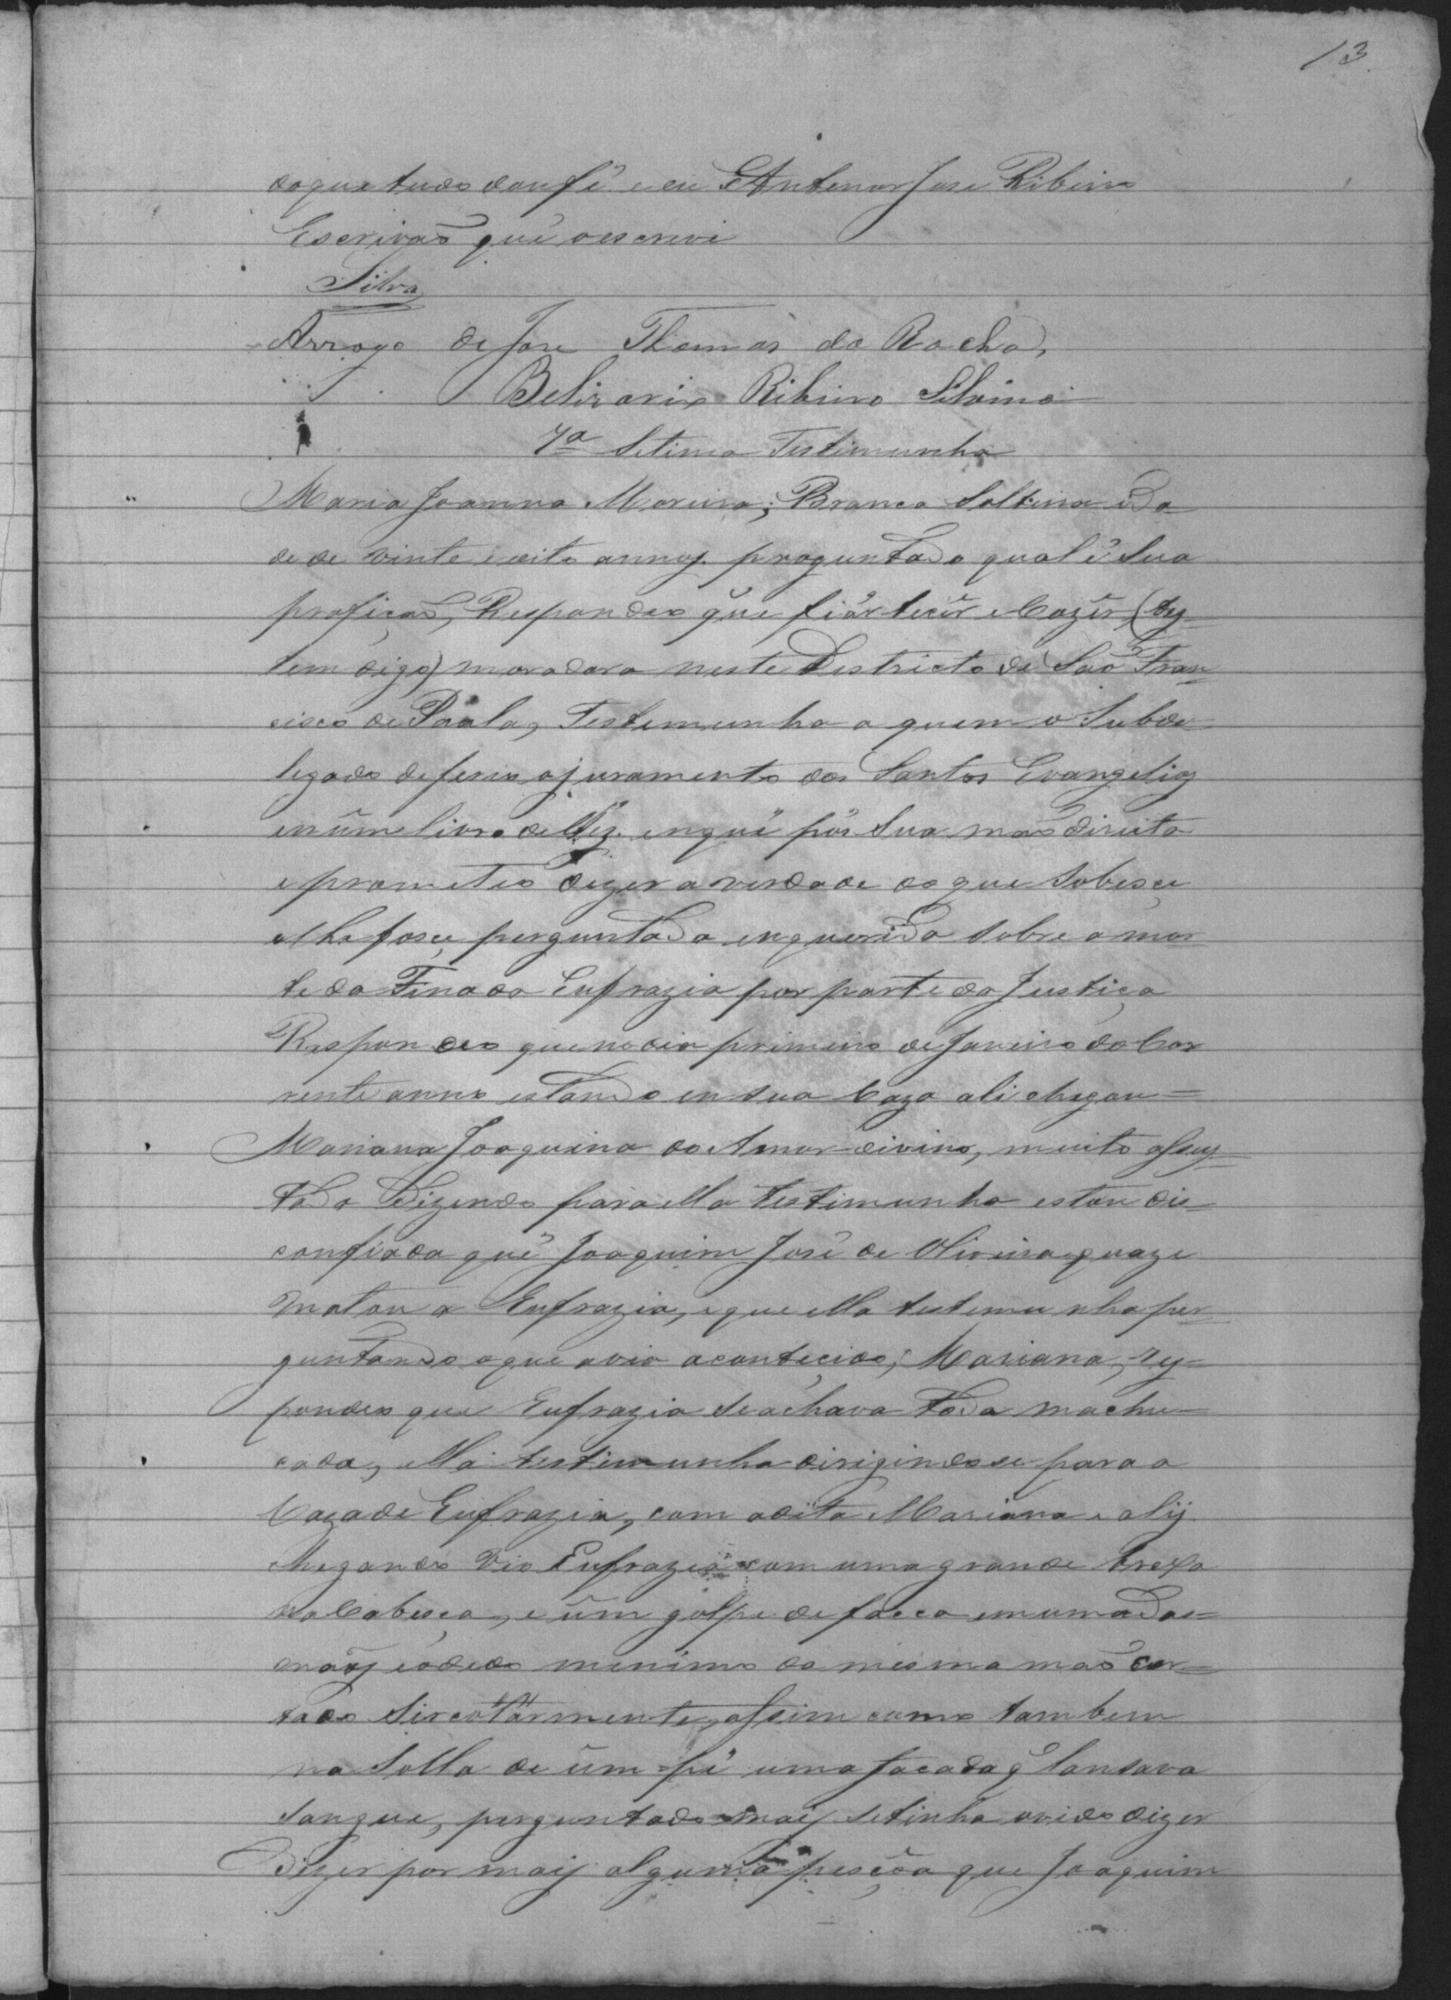 13
do que tudo dou fé e eu Antenor Jose Ribeiro
Escrivaõ que o escrevi
Silva
Arrogo de Jose Thomas da Rocha,
Belizario Ribeiro Silvino
7ª Setima Testimunha
Maria Joanna Moreira; Branca Solteira ida
de de vinte e oito annos. preguntado qual é Sua
profiçaõ, Respondeo que fiár tecêr e Cozêr (dy
tem digo) moradora neste Destricto de Saõ Fran
cisco de Paula, Testemunha a quem o Subde
legado deferio o juramento dos Santos Evangelios
em ũm livro delles. em que pôs Sua maõ direita
e prometeo dizer a verdade do que Sobesçe
e lhe fosçe perguntada enquerida Sobre a mor
te da Finada Eufrazia por parte da Justiça
Respondeo que no dia primeiro de Janeiro do Cor
rente anno estando em sua Caza ali chegou =
Mariana Joaquina do Amor divino, muito assus
tada Dizendo para ella testimunha estou dis=
confiada que Joaquim José de Oliveira quaze
matou a Eufrazia, e que ella testemunha per
guntando o que avia acontecido, Mariana, rys=
pondeo que Eufrazia se achava toda machu=
cada, ella testimunha dirigindose para a
Caza de Eufrazia, com a dita Mariana e aly
chegando vio Eufrazia com uma grande brexa
na Cabesça, e ũm golpe de facca em uma das=
maõs e o dedo minimo da mesma maõ cor=
tado assim como tambem
na Solla de ũm pé uma facada q̃ lansava
sangue, perguntado mais se tinha ovido dizer
Dizer por mais alguma pesçôa que Joaquim